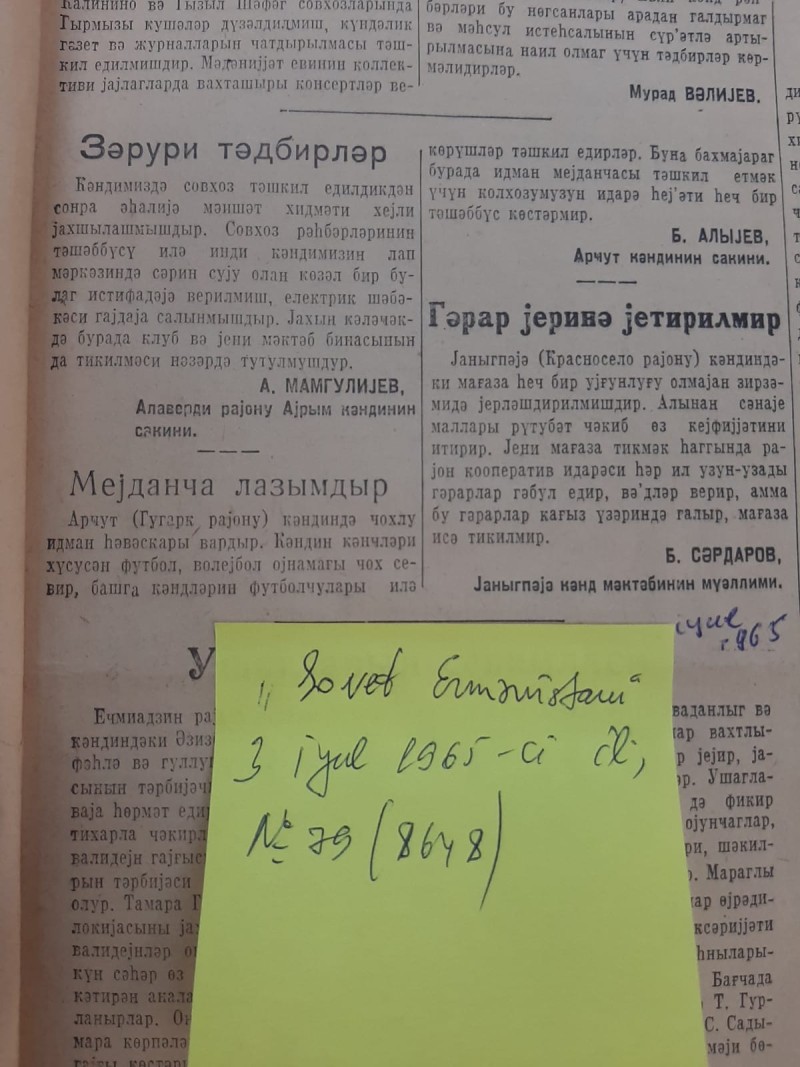 Калинино вә Гызыл Шәфәг совхозларында
Гырмызы кушәләр дүзәлдилмиш, күндәлик
газет вә журналларын чатдырылмасы тәш-
кил едилмишдир. Мәдәнијјәт евинин коллек-
тиви јајлагларда вахташыры консертләр ве-
бәрләри бу нөгсанлары арадан галдырмаг
вә мәһсул истеһсалынын сүр'әтлә арты-
рылмасына наил олмаг үчүн тәдбирләр көр-
мәлидирләр.
Мурад ВӘЛИЈЕВ.
Зәрури тәдбирләр
Кәндимиздә совхоз тәшкил едилдикдән
сонра әһалијә мәишәт хидмәти хејли
јахшылашмышдыр. Совхоз рәһбәрләринин
тәшәббүсү илә инди кәндимизин лап
мәркәзиндә сәрин сују олан көзәл бир бу-
лаг истифадәјә верилмиш, електрик шәбә-
кәси гајдаја салынмышдыр. Јахын кәләчәк-
дә бурада клуб вә јени мәктәб бинасынын
да тикилмәси нәзәрдә тутулмушдур.
А. МАМГУЛИЈЕВ,
Алаверди рајону Ајрым кәндинин
сакини.
Мејданча лазымдыр
Арчут (Гугарк рајону) кәндиндә чохлу
идман һәвәскары вардыр. Кәндин кәнчләри
хүсусән футбол, волејбол ојнамағы чох се-
вир, башга кәндләрин футболчулары илә
көрүшләр тәшкил едирләр. Буна бахмајараг
бурада идман мејданчасы тәшкил етмәк
үчүн колхозумузун идарә һеј'әти һеч бир
тәшәббүс көстәрмир.
Б. АЛЫЈЕВ,
Арчут кәндинин сакини.
Гәрар јеринә јетирилмир
Јаныгпәјә (Красносело рајону) кәндиндә-
ки мағаза һеч бир ујғунлуғу олмајан зирзә-
мидә јерләшдирилмишдир. Алынан сәнаје
маллары рүтубәт чәкиб өз кејфијјәтини
итирир. Јени мағаза тикмәк һаггында ра-
јон кооператив идарәси һәр ил узун-узады
гәрарлар гәбул едир, вә'дләр верир, амма
бу гәрарлар кағыз үзәриндә галыр, мағаза
исә тикилмир.
Б. СӘРДАРОВ,
Јаныгпәјә кәнд мәктәбинин мүәллими.
iyul
1965
У
„Sovet Ermənistanı“
3 iyul 1965-ci il,
№ 79 (8648)
Ечмиадзин рај
кәндиндәки Әзиз
фәһлә вә гуллу
сынын тәрбијәч
ваја һөрмәт еди
тихарла чәкирл
валидејн гајғыс
рын тәрбијәси
олур. Тамара Г
локијасыны ја
валидејнләр о
күн сәһәр өз
кәтирән анала
ланырлар. Он
мара көрпәлә
гајғы көстәр
ваданлыг вә
ар вахтлы-
р јејир, ја-
әр. Ушагла-
дә фикир
ојунчаглар,
ри, шәкил-
р. Мараглы
ар өјрәди-
ксәријјәти
һнылары-
Бағчада
Т. Гур-
С. Сады-
мәји бө-